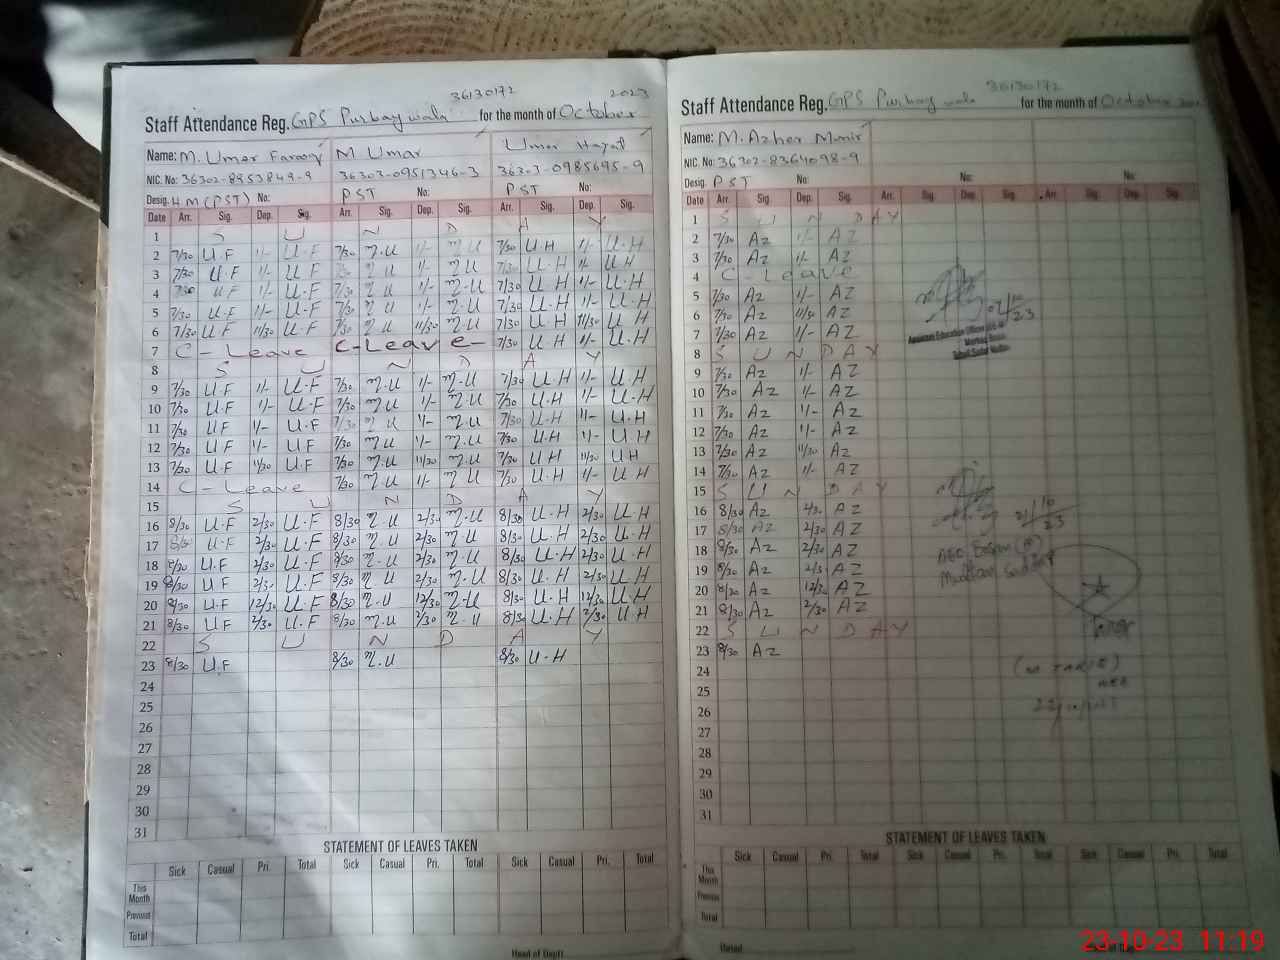 36130172 2023
Staff Attendance Reg. GPS Purbay wala for the month of October
Name: M. Umer Farooq M Umar Umar Hayat
NIC. No: 36302-8953849-9 36303-0951346-3 36303-0985695-9
Desig. HM (PST) No: PST No: PST No:
Date Arr. Sig. Dep. Sig. Arr. Sig. Dep. Sig. Arr. Sig. Dep. Sig.
1 S U N D A Y
2 7/30 U.F 1/- U.F 7/30 M.U 1/- M.U 7/30 U.H 1/- U.H
3 7/30 U.F 1/- U.F 7/30 M.U 1/- M.U 7/30 U.H 1/- U.H
4 7/30 U.F 1/- U.F 7/30 M.U 1/- M.U 7/30 U.H 1/- U.H
5 7/30 U.F 1/- U.F 7/30 M.U 1/- M.U 7/30 U.H 1/- U.H
6 7/30 U.F 11/30 U.F 7/30 M.U 11/30 M.U 7/30 U.H 11/30 U.H
7 C-Leave C-Leave- 7/30 U.H 1/- U.H
8 S U N D A Y
9 7/30 U.F 1/- U.F 7/30 M.U 1/- M.U 7/30 U.H 1/- U.H
10 7/30 U.F 1/- U.F 7/30 M.U 1/- M.U 7/30 U.H 1/- U.H
11 7/30 U.F 1/- U.F 7/30 M.U 1/- M.U 7/30 U.H 1/- U.H
12 7/30 U.F 1/- U.F 7/30 M.U 1/- M.U 7/30 U.H 1/- U.H
13 7/30 U.F 11/30 U.F 7/30 M.U 11/30 M.U 7/30 U.H 11/30 U.H
14 C-Leave 7/30 M.U 1/- M.U 7/30 U.H 1/- U.H
15 S U N D A Y
16 8/30 U.F 2/30 U.F 8/30 M.U 2/30 M.U 8/30 U.H 2/30 U.H
17 8/30 U.F 2/30 U.F 8/30 M.U 2/30 M.U 8/30 U.H 2/30 U.H
18 8/30 U.F 2/30 U.F 8/30 M.U 2/30 M.U 8/30 U.H 2/30 U.H
19 8/30 U.F 2/30 U.F 8/30 M.U 2/30 M.U 8/30 U.H 2/30 U.H
20 8/30 U.F 12/30 U.F 8/30 M.U 12/30 M.U 8/30 U.H 12/30 U.H
21 8/30 U.F 2/30 U.F 8/30 M.U 2/30 M.U 8/30 U.H 2/30 U.H
22 S U N D A Y
23 8/30 U.F 8/30 M.U 8/30 U.H
24
25
26
27
28
29
30
31
STATEMENT OF LEAVES TAKEN
Sick Casual Pri. Total Sick Casual Pri. Total Sick Casual Pri. Total
This Month
Previous
Total
Head of Deptt.
36130172
Staff Attendance Reg. GPS Purbay wala for the month of October
Name: M. Azher Munir
NIC. No: 36302-8364098-9
Desig. PST No: No: No:
Date Arr. Sig. Dep. Sig. Arr. Sig. Dep. Sig. Arr. Sig. Dep. Sig.
1 S U N D A Y
2 7/30 AZ 1/- AZ
3 7/30 AZ 1/- AZ
4 C-Leave
5 7/30 AZ 1/- AZ
6 7/30 AZ 11/30 AZ
7 7/30 AZ 1/- AZ
8 S U N D A Y
9 7/30 AZ 1/- AZ
10 7/30 AZ 1/- AZ
11 7/30 AZ 1/- AZ
12 7/30 AZ 1/- AZ
13 7/30 AZ 11/30 AZ
14 7/30 AZ 1/- AZ
15 S U N D A Y
16 8/30 AZ 2/30 AZ
17 8/30 AZ 2/30 AZ
18 8/30 AZ 2/30 AZ
19 8/30 AZ 2/30 AZ
20 8/30 AZ 12/30 AZ
21 8/30 AZ 2/30 AZ
22 S U N D A Y
23 8/30 AZ
24
25
26
27
28
29
30
31
Assistant Education Officer
STATEMENT OF LEAVES TAKEN
Sick Casual Pri. Total Sick Casual Pri. Total Sick Casual Pri. Total
This Month
Previous
Total
23-10-23 11:19